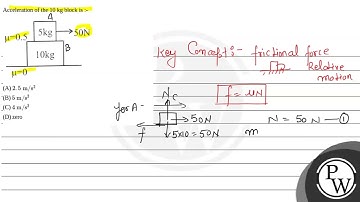 Acceleration of the 10 kg block is :-
A
5kg
50N
μ=0.5
B
10kg
μ=0
(A) 2.5 m/s²
(B) 5 m/s²
(C) 4 m/s²
(D) zero
Key Concept:- frictional force
Relative motion
f = μN
for A-
N
50N
N = 50 N - ①
f
5×10=50N
m
P
W